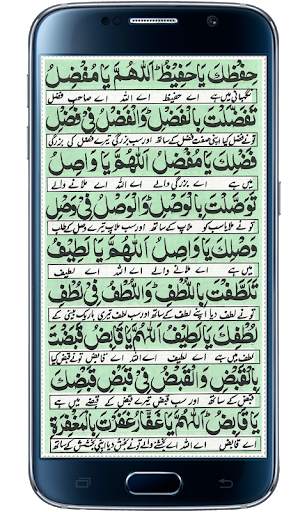 حِفْظِكَ يَا حَفِيْظُ اَللّٰهُمَّ يَا مُفْضِلُ
نگہبانی میں ہے اے حفیظ اے اللہ اے صاحب فضل
تَفَضَّلْتَ بِالْفَضْلِ وَالْفَضْلُ فِيْ فَضْلِ
تو نے فضل کیا اپنی صفت فضل کے ساتھ اور سب بزرگی تیرے فضل کی بزرگی
فَضْلِكَ يَا مُفْضِلُ اَللّٰهُمَّ يَا وَاصِلُ
میں ہے اے بزرگی والے اے اللہ اے ملانے والے
تَوَصَّلْتَ بِالْوَصْلِ وَالْوَصْلُ فِيْ وَصْلِ
تو نے ملاپ کے ساتھ اور سب ملاپ تیرے وصل کے
وَصْلِكَ يَا وَاصِلُ اَللّٰهُمَّ يَا لَطِيْفُ
میں ہے اے ملانے والے اے اللہ اے لطیف
تَلَطَّفْتَ بِاللُّطْفِ وَاللُّطْفُ فِيْ لُطْفِ
تو نے لطف دیا اپنے لطف کے ساتھ اور سب لطف تیری باریک بینی کے
لُطْفِكَ يَا لَطِيْفُ اَللّٰهُمَّ يَا قَابِضُ قَبَضْتَ
لطف میں ہے اے لطیف اے اللہ اے قابض تو نے قبض کیا
بِالْقَبْضِ وَالْقَبْضُ فِيْ قَبْضِ قَبْضِكَ
قبض کے ساتھ اور سب قبض تیرے قبض کے قبضے میں ہے
يَا قَابِضُ اَللّٰهُمَّ يَا غَفَّارُ غَفَرْتَ بِالْمَغْفِرَةِ
اے قابض اے اللہ اے بخشنے والے تو نے بخش دیا اپنی بخشش کے ساتھ